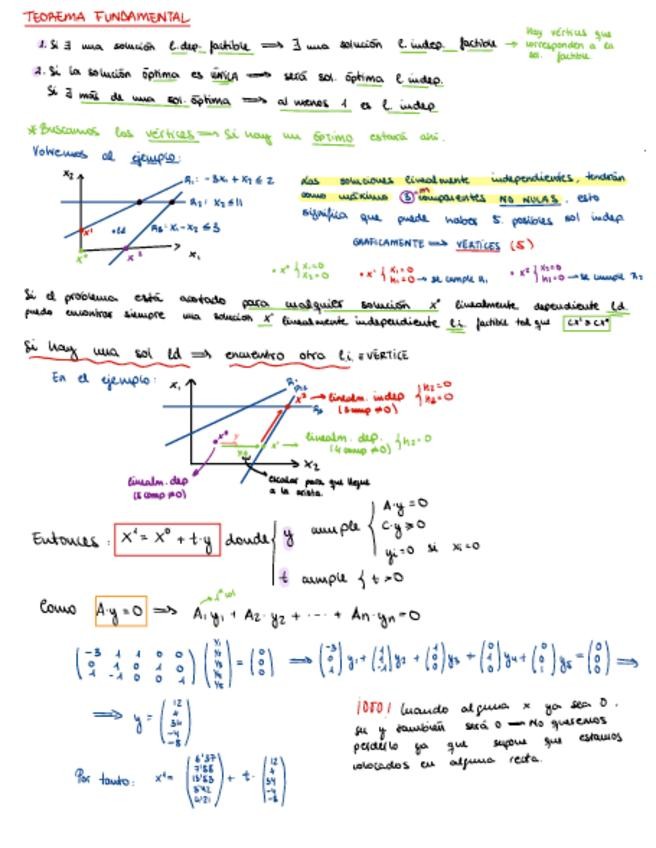 TEOREMA FUNDAMENTAL
1. Si ∃ una solución l.dep. factible ⟹ ∃ una solución l. indep. factible → Hay vértices que corresponden a la sol. factible
2. Si la solución óptima es ÚNICA ⟹ será sol. óptima l. indep.
Si ∃ más de una sol. óptima ⟹ al menos 1 es l. indep
*Buscamos los vértices ⟹ Si hay un ÓPTIMO estará ahí.
Volvemos al ejemplo:
x₂
R₁: -3x₁ + x₂ ≤ 2
R₂: x₂ ≤ 11
R₃: x₁ - x₂ ≤ 3
x₁
Las soluciones linealmente independientes, tendrán
como máximo 3 componentes NO NULAS. esto
significa que puede haber 5 posibles sol indep.
GRÁFICAMENTE ⟹ VÉRTICES (5)
• x⁰ { x₁=0 x₂=0
• x¹ { x₁=0 h₁=0 → se cumple R₁
• x² { x₂=0 → se cumple
Si el problema está acotado para cualquier solución x⁰ linealmente dependiente l.d.
puedo encontrar siempre una solución x¹ linealmente independiente l.i. factible tal que
Si hay una sol ld ⟹ encuentro otra l.i. = VÉRTICE
En el ejemplo:
x₁
x₂
linealm. indep (3 comp ≠0)
linealm. dep. (4 comp ≠0) { h₃=0
linealm. dep (5 comp ≠0)
escalar para que llegue a la arista.
Entonces: x¹ = x⁰ + t·y donde
y cumple { A·y = 0
C·y ≥ 0
yᵢ=0 si xᵢ=0
t cumple { t > 0
Como A·y = 0 ⟹ A₁y₁ + A₂·y₂ + ... + An·yn = 0
(-3 1 1 0 0 / 0 1 0 1 0 / 1 -1 0 0 1) (y₁ y₂ y₃ y₄ y₅) = (0 0 0) ⟹ (-3 0 1) y₁ + (1 1 -1) y₂ + (1 0 0) y₃ + (0 1 0) y₄ + (0 0 1) y₅ = (0 0 0) ⟹
⟹ y = (12 4 34 -4 -8)
Por tanto: x¹ = + t · (12 4 34 -4 -8)
¡OJO! Cuando alguna x ya sea 0,
su y también será 0 — No queremos
perderlo ya que supone que estamos
colocados en alguna recta.